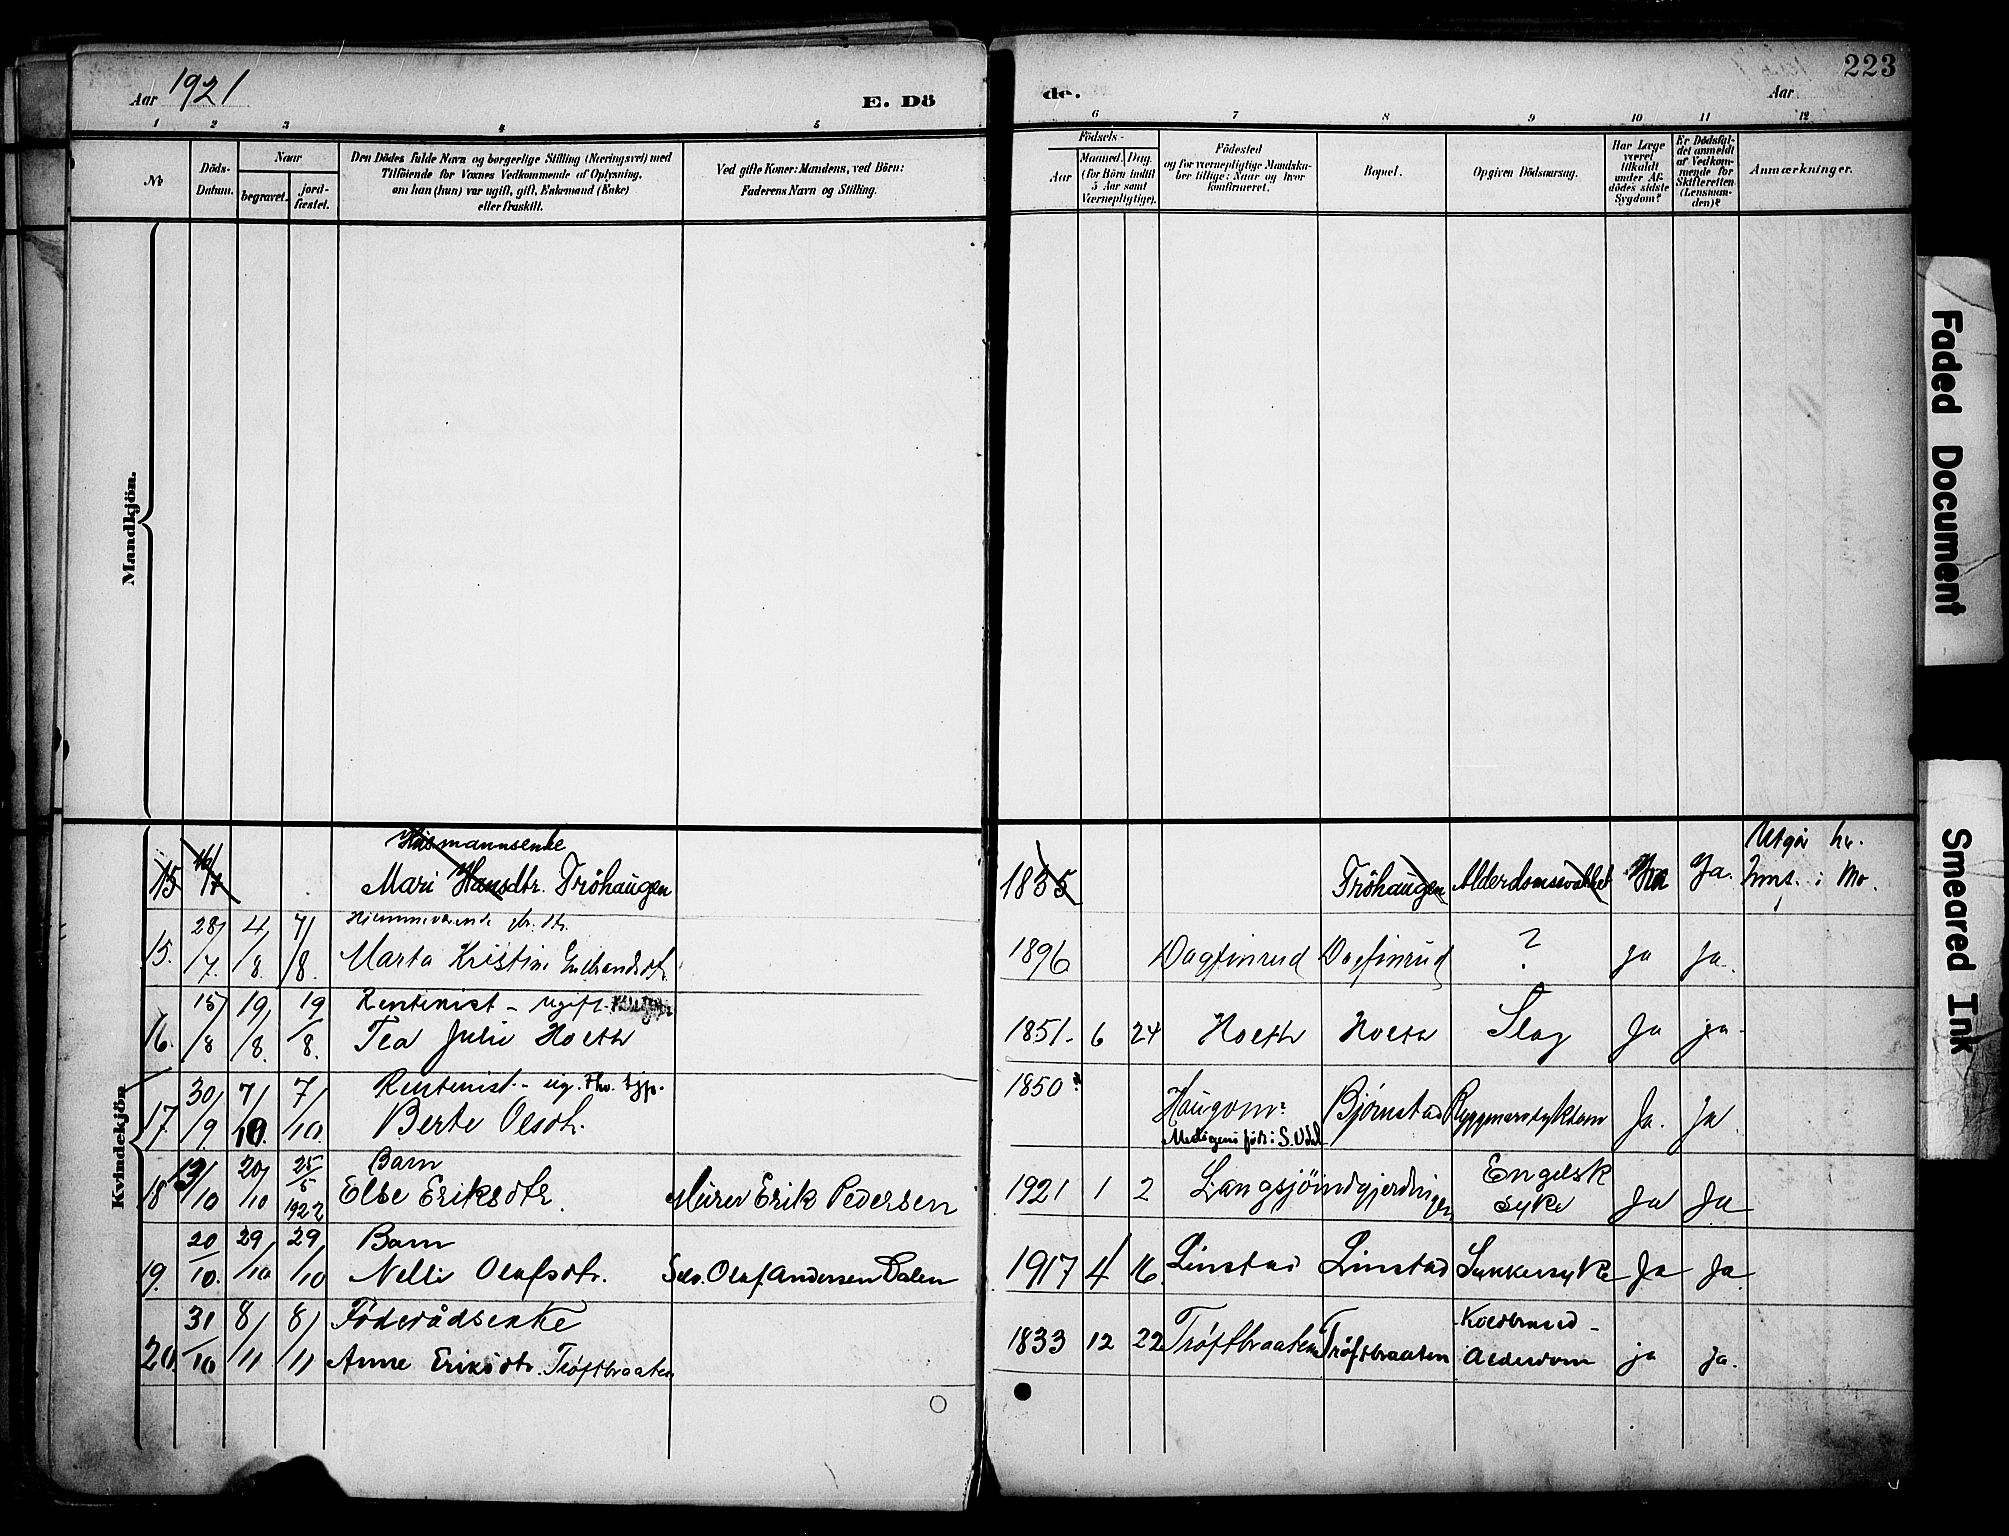 Aar 1921
E. Dö
de.
Aar
223
1 2 3 4 5 6 7 8 9 10 11 12
No
Döds-
Datum.
Naar
begravet.
jord-
fæstet.
Den Dödes fulde Navn og borgerlige Stilling (Næringsvei) med
Tilföiende for Voxnes Vedkommende af Oplysning,
om han (hun) var ugift, gift, Enkemand (Enke)
eller fraskilt.
Ved gifte Koner: Mandens, ved Börn:
Faderens Navn og Stilling.
Födsels-
Aar
Maaned. Dag.
(for Börn indtil
5 Aar samt
Værnepligtige).
Födested
og for værnepligtige Mandska-
ber tillige: Naar og hvor
konfirmeret.
Bopæl.
Opgiven Dödsaarsag.
Har Læge
været
tilkaldt
under Af-
dödes sidste
Sygdom?
Er Dødsfal-
det anmeldt
af Vedkom-
mende for
Skifteretten
(Lensman-
den)?
Anmærkninger.
Mandkjön.
Kvindekjön
Husmannsenke
15 Mari Hansdtr. Tröhaugen 1835 Tröhaugen Alderdomssvakhet Ja. Utgår hr.
i Mo.
15. 28/7. 4/8. 7/8. Marta Kristine Gulbrandsdtr. 1896 Dagfinrud Dagfinrud ? ja ja.
Rentenist - ugift.
16. 15/8 19/8. 19/8. Tea Julie Hoeth 1851. 6 24 Hoeth Hoeth Slag Ja ja.
Rentenist - ug.
17. 30/9 7/10. 7/10. Berte Olsdtr. 1850 Haugom Bjørnstad Ryggmarvsykdom Ja. Ja
født i S. Odal
Barn
18 13/10 20/10 25/5 1922 Else Eriksdtr. Murer Erik Pedersen 1921 1 2 Langsjöindgjerdningen Engelsk
syke Ja Ja
Barn
19. 20/10. 29/10 29/10 Nelli Olafsdtr. Selv. Olaf Andersen Dalen 1917 4 16. Linstad Linstad Sukkersyke Ja Ja
Föderådsenke
20. 31/10 8/11 8/11 Anne Eriksdtr. Trøftbraaten 1833 12 22 Trøftbraaten Trøftbraaten Koldbrand -
Alderdom ja Ja.
Faded Document
Smeared Ink